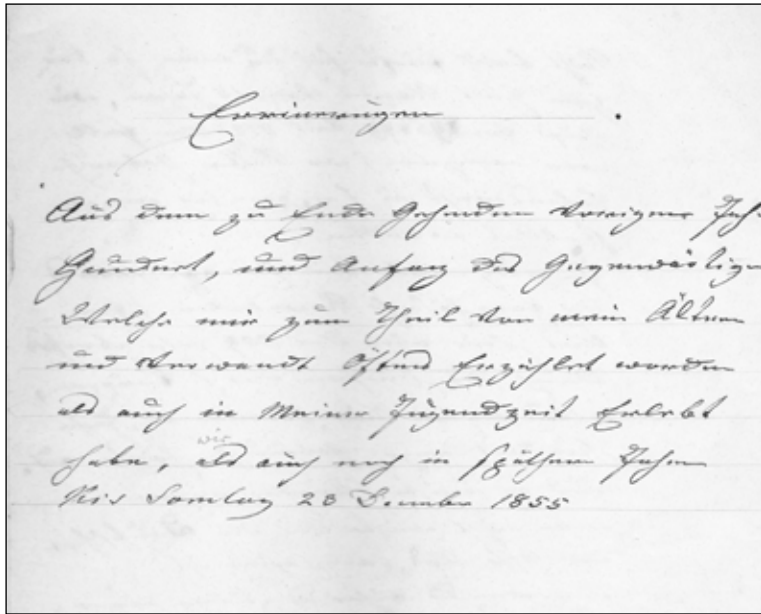 Errinerungen
Aus dem zu Ende Gehenden Vorigen Jahr
Hundert, und Anfang des Gegenwärtigen
Welche mir zum Theil von mein Ältern
und Verwandt Öfters Erzählet worden
als auch in Meiner Jugendzeit Erlebt
habe, wie als auch noch in späthern Jahren
Kis Somlay 28 December 1855